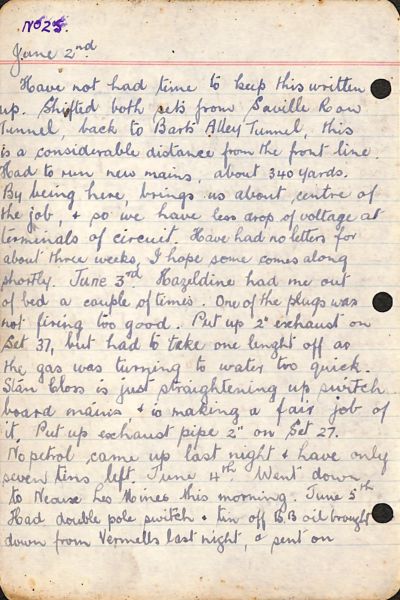 No 25.
June 2nd
Have not had time to keep this written
up. Shifted both sets from Saville Row
Tunnel, back to Barts Alley Tunnel, this
is a considerable distance from the front line.
Had to run new mains, about 340 yards.
By being here, brings us about centre of
the job, & so we have less drop of voltage at
terminals of circuit. Have had no letters for
about three weeks, I hope some comes along
shortly. June 3rd. Hazeldine had me out
of bed a couple of times. One of the plugs was
not firing too good. Put up 2" exhaust on
Set 37, but had to take one lenght off as
the gas was turning to water too quick.
Stan Closs is just straightening up switch
board mains, & is making a fair job of
it. Put up exhaust pipe 2" on Set 27.
No petrol came up last night & have only
seven tins left. June 4th. Went down
to Neaux Les Mines this morning. June 5th
Had double pole switch & tin off BB oil brought
down from Vermells last night, & sent on